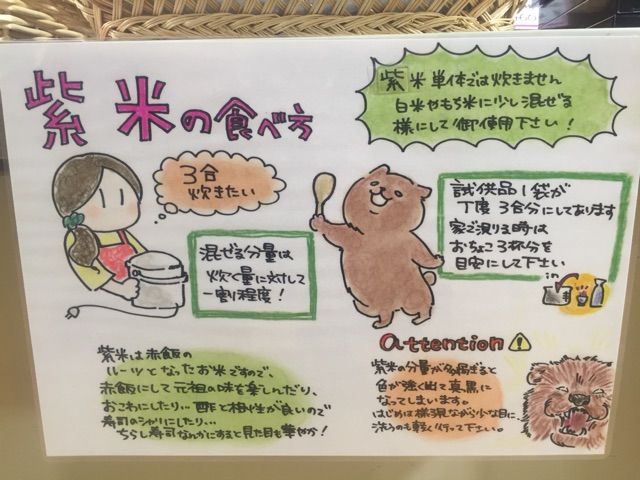 紫米の食べ方
紫米単体では炊きません
白米やもち米に少し混ぜる
様にして御使用下さい!
3合
炊きたい
混ぜる分量は
炊く量に対して
一割程度!
試供品1袋が
丁度3合分にしてあります
家で測りる時は
おちょこ3杯分を
目安にして下さい
in
紫米は赤飯の
ルーツとなったお米ですので、
赤飯にして元祖の味を楽しんだり、
おこわにしたり…酢と相性が良いので
寿司のシャリにしたり…
ちらし寿司なんかにすると見た目も華やか!
attention
紫米の分量が多過ぎると
色が強く出て真黒に
なってしまいます。
はじめは様子見ながら少な目に…
洗うのも軽く行って下さい。